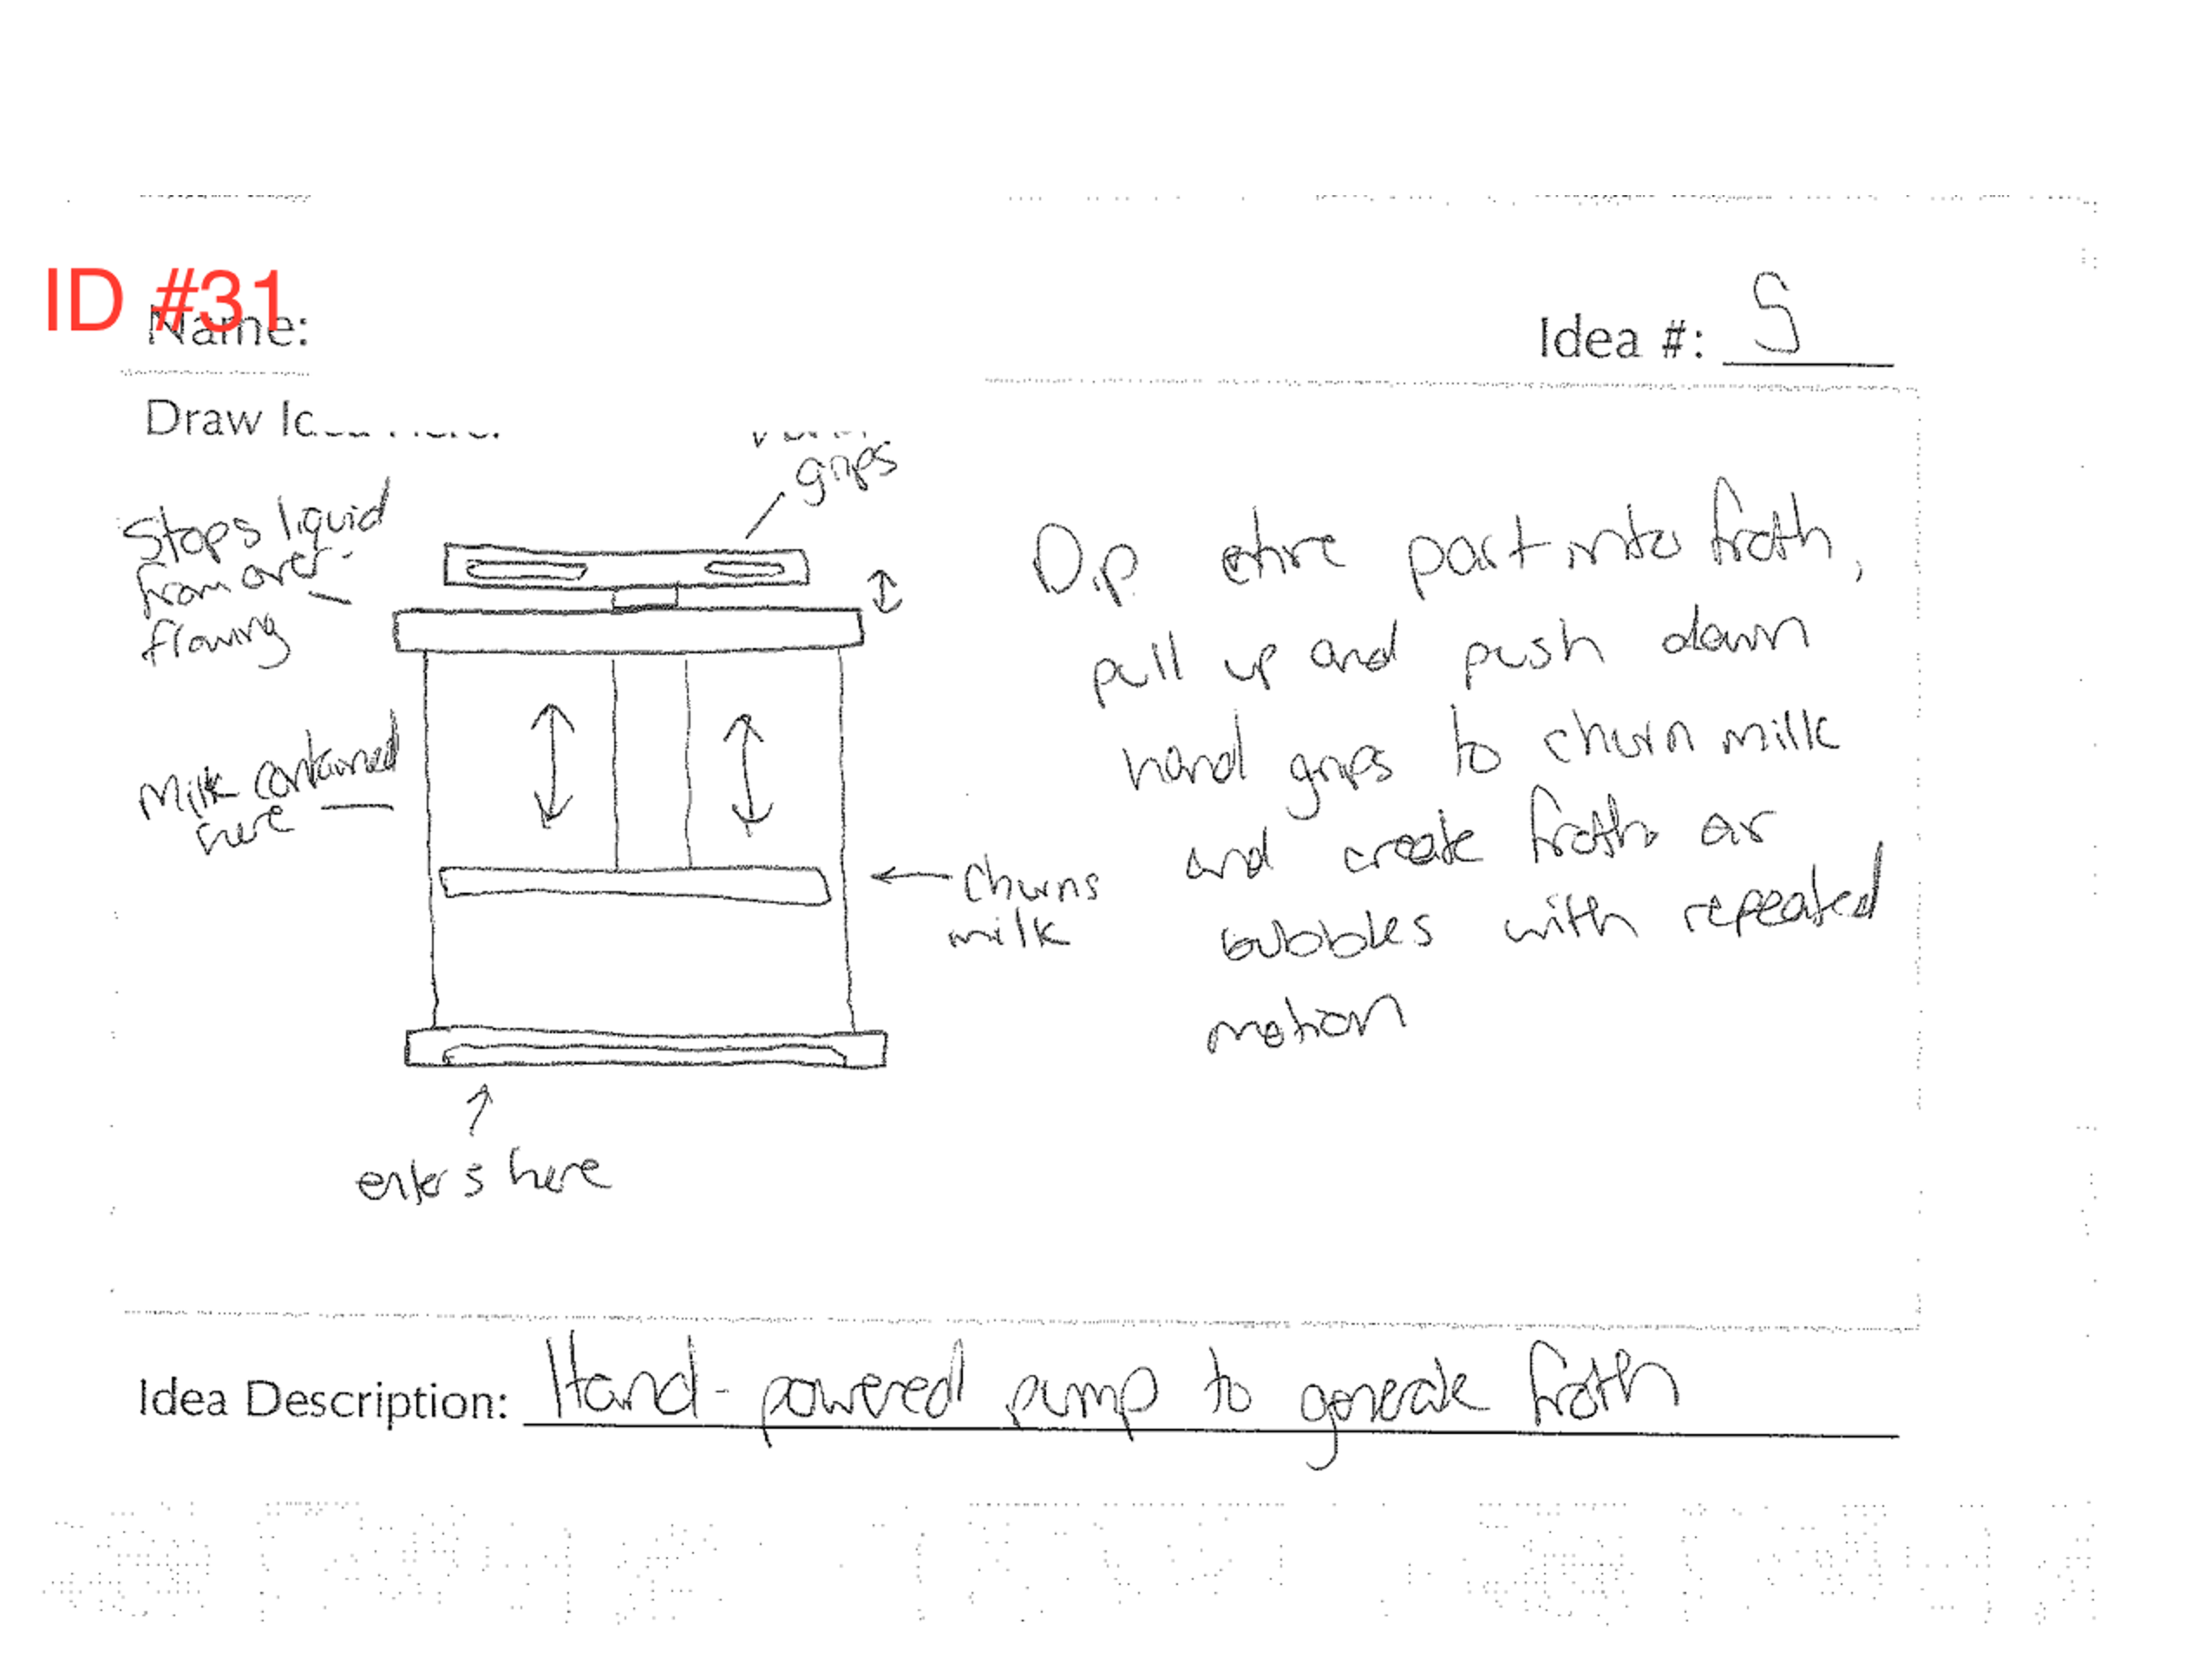 ID #31
Name:
Idea #: 5
Draw
grips
Stops liquid
from over-
flowing
Milk contained
here
churns
milk
enters here
Dip entire part into froth,
pull up and push down
hand grips to churn milk
and create froth or
bubbles with repeated
motion
Idea Description: Hand-powered pump to generate froth